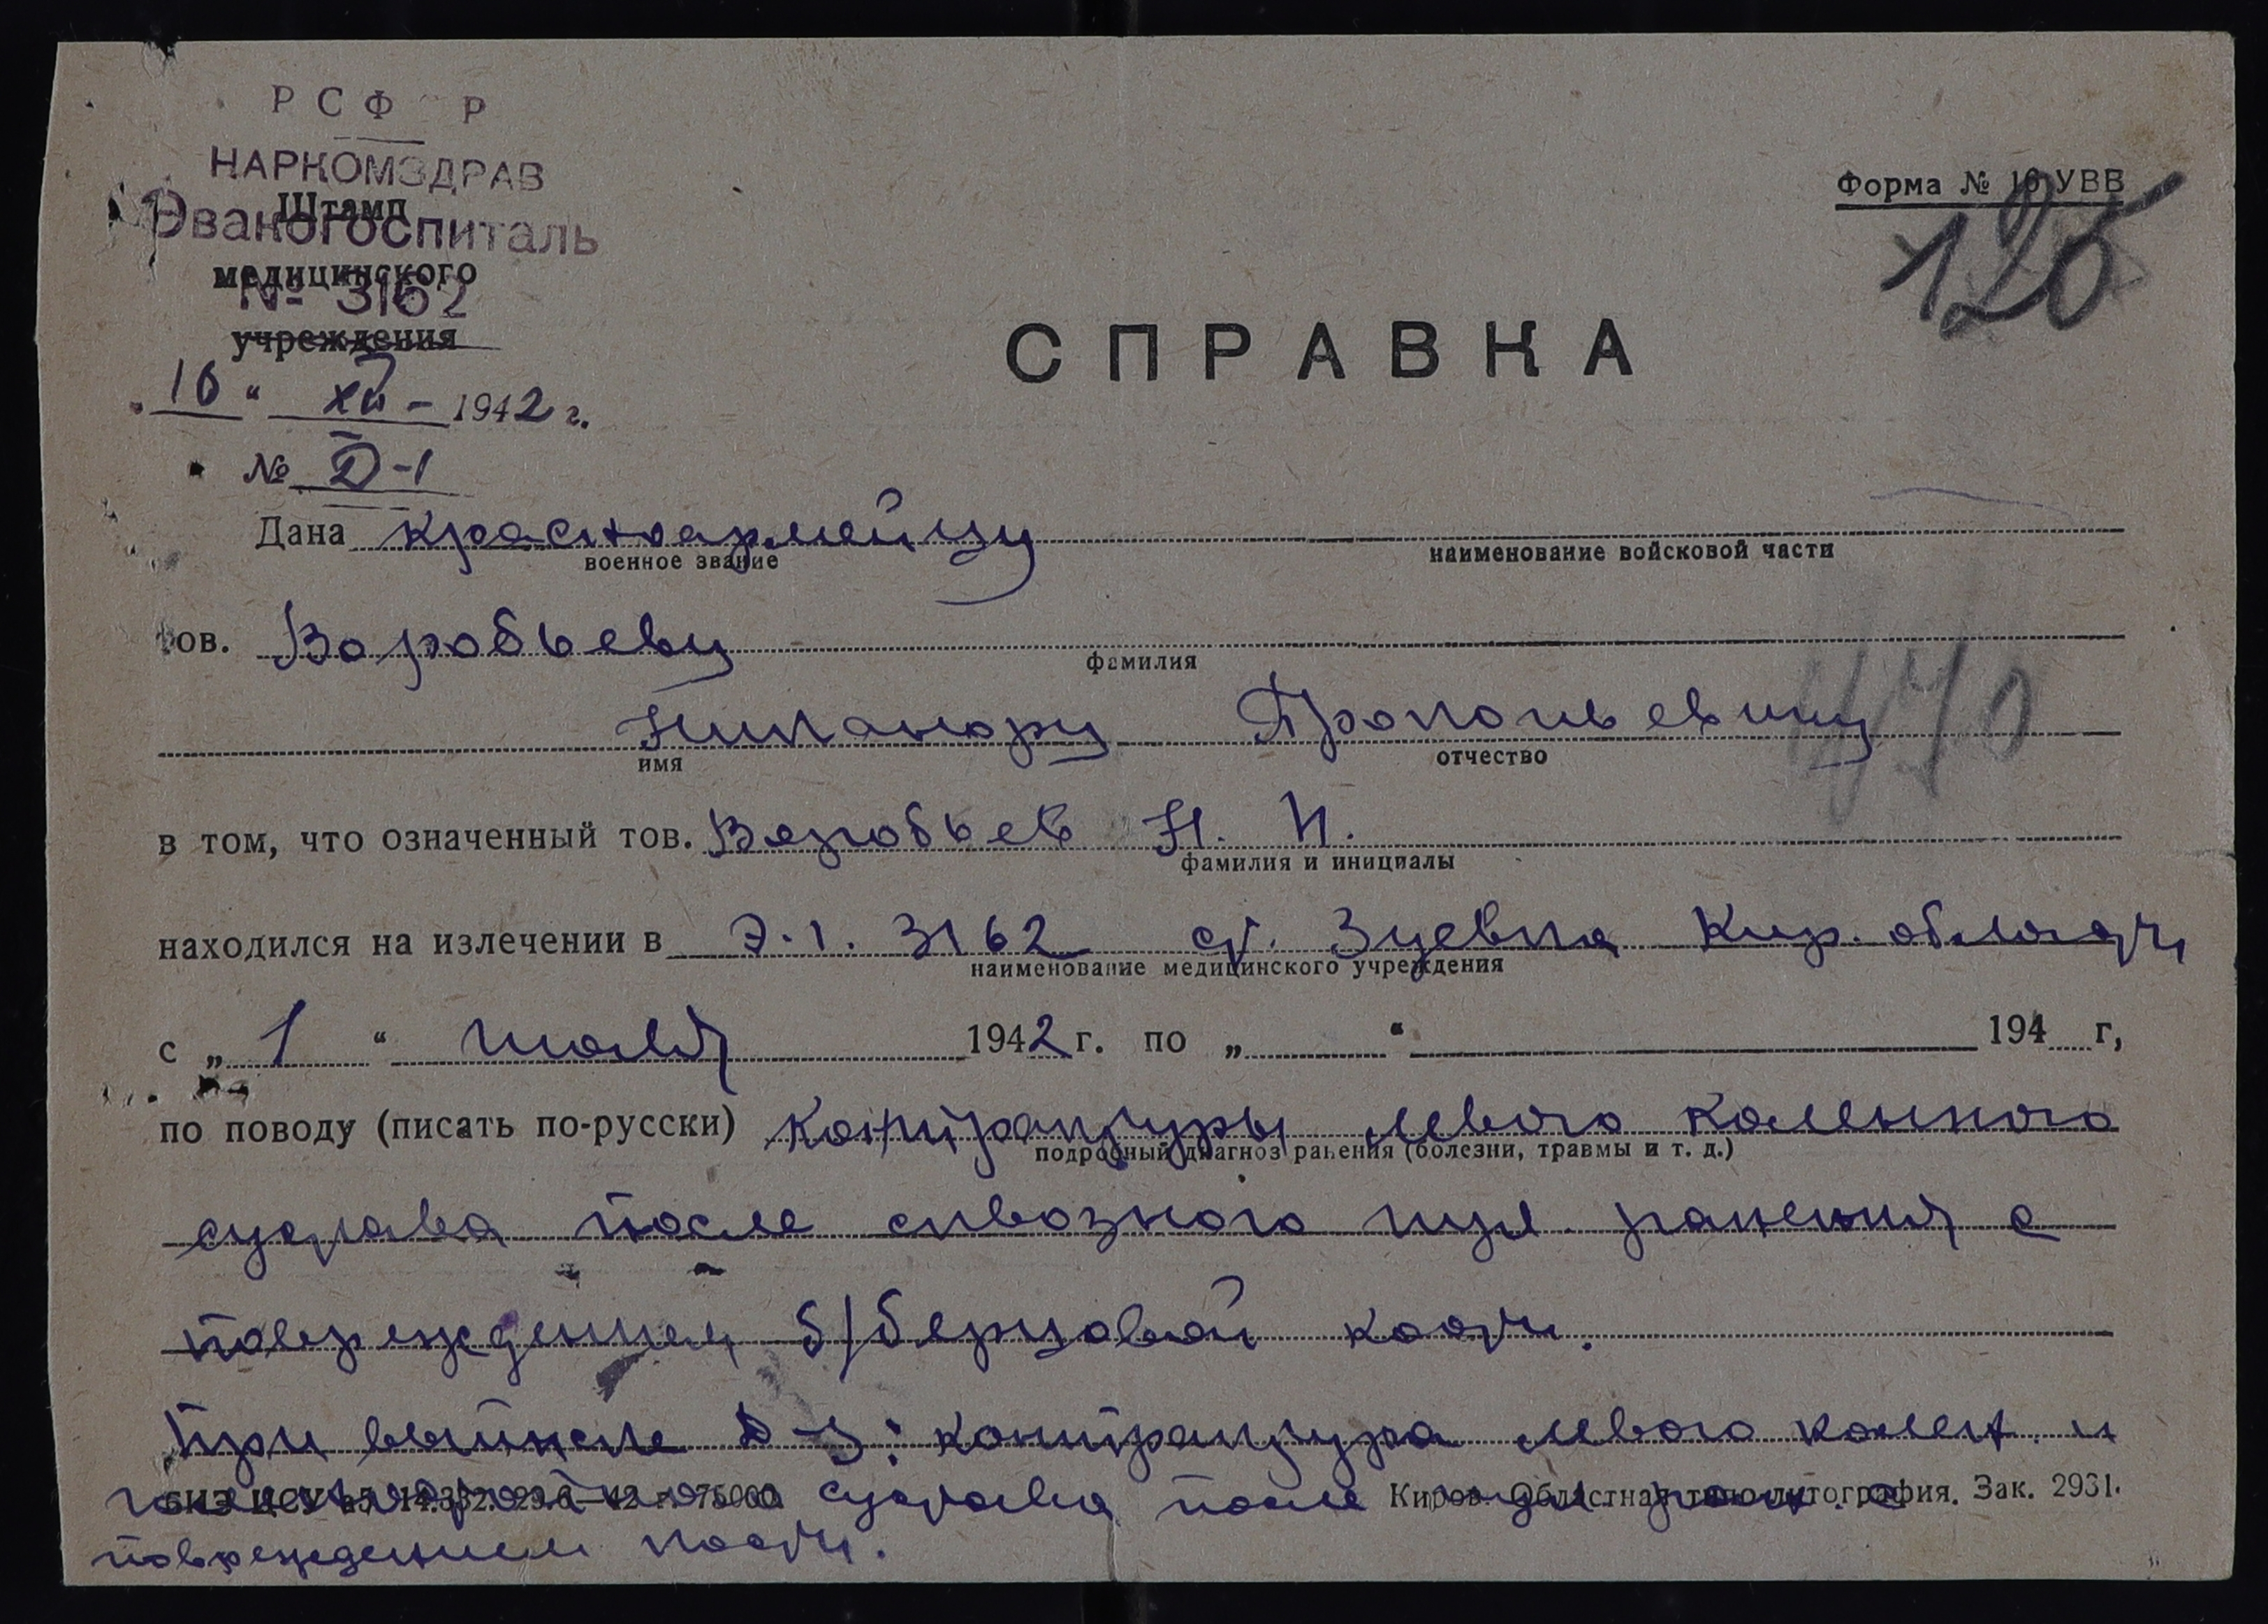 РСФ Р
НАРКОМЗДРАВ
Штамп
Эвакогоспиталь
медицинского
№ 3162
учреждения
Форма № 16 УВВ
120
СПРАВКА
„ 16 “ XII – 1942 г.
№ D-1
Дана красноармейцу
военное звание наименование войсковой части
тов. Воробьеву
фамилия
Никанору Прокопьевичу
имя отчество
в том, что означенный тов. Воробьев Н. П.
фамилия и инициалы
находился на излечении в Э.Г. 3162 ст. Зуевка Кир. области
наименование медицинского учреждения
с „ 1 “ июля 1942 г. по „ “ 194 г,
по поводу (писать по-русски) контрактуры левого коленного
подробный диагноз ранения (болезни, травмы и т. д.)
сустава после сквозного пул. ранения с
повреждением б/берцовой кости.
При выписке D-з: контрактура левого колен. и
сустава после
БИЗ ЦСУ 29.6—42 г. 75000. Киров. Областная типо-литография. Зак. 2931.
повреждением кости.